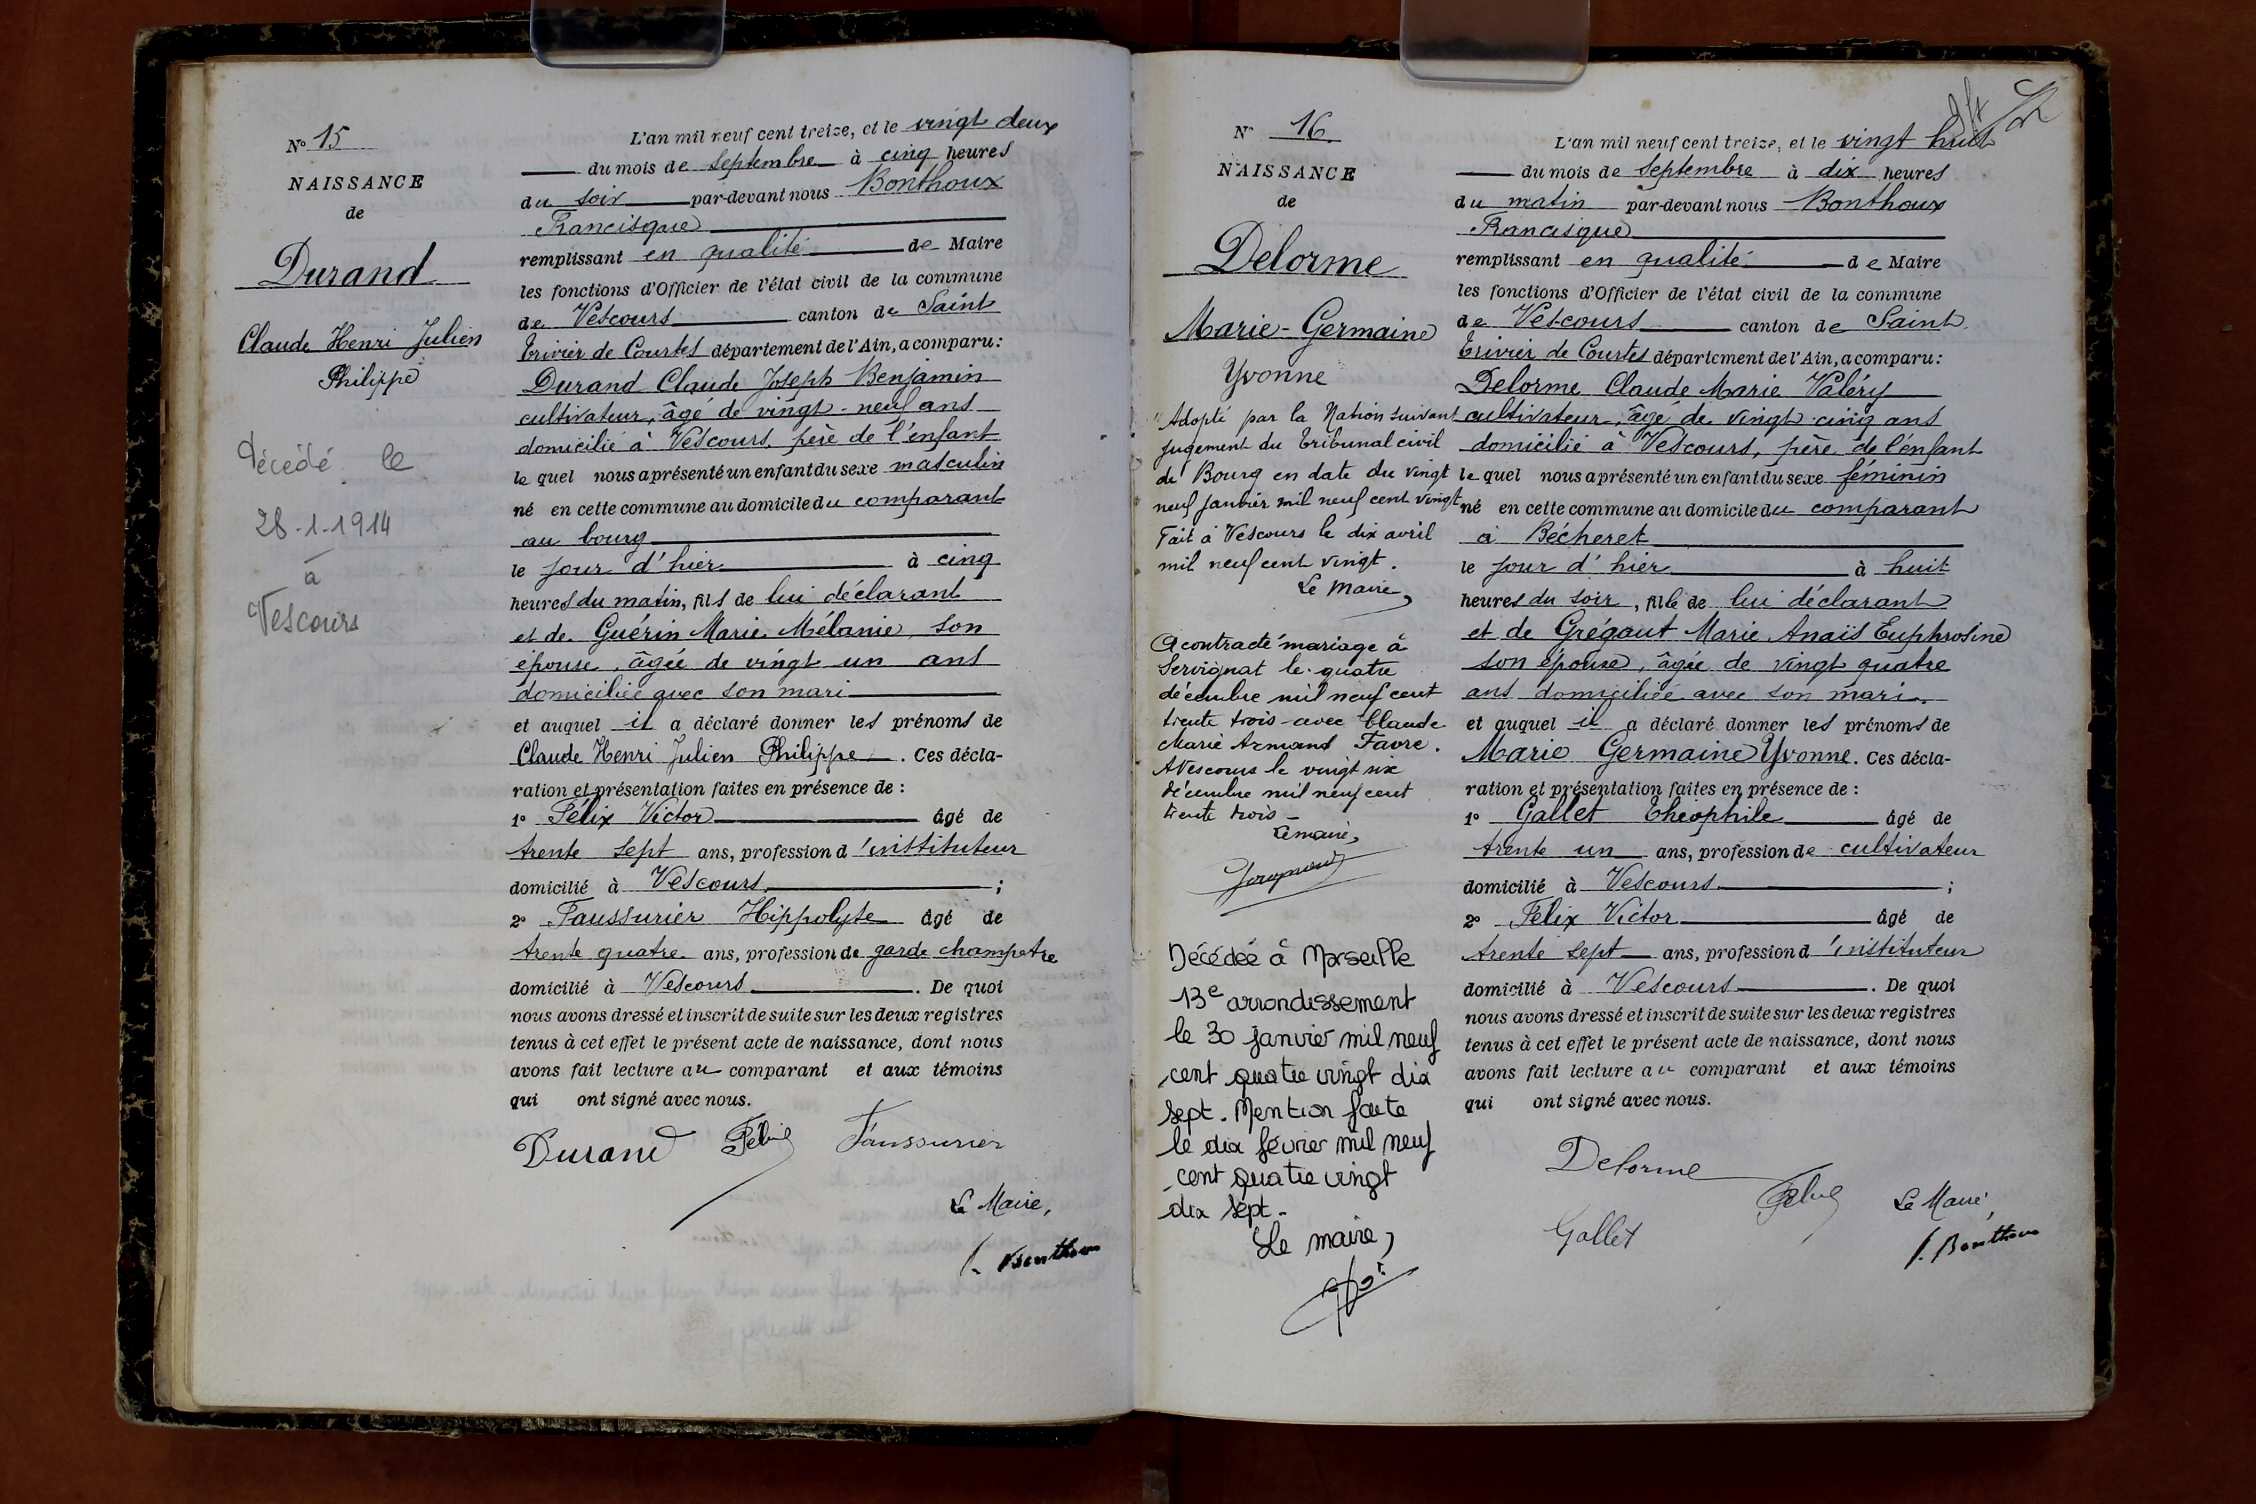 N° 15
NAISSANCE
de
Durand
Claude Henri Julien
Philippe
Décédé le
28-1-1914
à
Vescours
L'an mil neuf cent treize, et le vingt deux
du mois de Septembre à cinq heures
du soir par-devant nous Bonthoux
Francisque
remplissant en qualité de Maire
les fonctions d'Officier de l'état civil de la commune
de Vescours canton de Saint
Trivier de Courtes département de l'Ain, a comparu:
Durand Claude Joseph Benjamin
cultivateur, âgé de vingt-neuf ans
domicilié à Vescours, père de l'enfant
le quel nous a présenté un enfant du sexe masculin
né en cette commune au domicile du comparant
au bourg
le jour d'hier à cinq
heures du matin, fils de lui déclarant
et de Guérin Marie Mélanie, son
épouse, âgée de vingt un ans
domiciliée avec son mari
et auquel il a déclaré donner les prénoms de
Claude Henri Julien Philippe. Ces décla-
ration et présentation faites en présence de :
1° Félix Victor âgé de
trente sept ans, profession d'instituteur
domicilié à Vescours ;
2° Faussurier Hippolyte âgé de
trente quatre ans, profession de garde champetre
domicilié à Vescours. De quoi
nous avons dressé et inscrit de suite sur les deux registres
tenus à cet effet le présent acte de naissance, dont nous
avons fait lecture au comparant et aux témoins
qui ont signé avec nous.
Durand Félix Faussurier
Le Maire,
f. Bonthoux
N° 16
NAISSANCE
de
Delorme
Marie-Germaine
Yvonne
"Adopté par la Nation suivant
jugement du Tribunal civil
de Bourg en date du vingt
neuf janvier mil neuf cent vingt
Fait à Vescours le dix avril
mil neuf cent vingt.
Le Maire,
A contracté mariage à
Servignat le quatre
décembre mil neuf cent
trente trois avec Claude
Marie Armand Favre.
A Vescours le vingt six
décembre mil neuf cent
trente trois -
Le maire,
Décédée à Marseille
13e arrondissement
le 30 janvier mil neuf
cent quatre vingt dix
sept. Mention faite
le dix février mil neuf
cent quatre vingt
dix sept.
Le maire,
L'an mil neuf cent treize, et le vingt huit
du mois de Septembre à dix heures
du matin par-devant nous Bonthoux
Francisque
remplissant en qualité de Maire
les fonctions d'Officier de l'état civil de la commune
de Vescours canton de Saint
Trivier de Courtes département de l'Ain, a comparu:
Delorme Claude Marie Valéry
cultivateur, âgé de vingt cinq ans
domicilié à Vescours, père de l'enfant
le quel nous a présenté un enfant du sexe féminin
né en cette commune au domicile du comparant
à Bécheret
le jour d'hier à huit
heures du soir, fille de lui déclarant
et de Grégaut Marie Anaïs Euphrosine
son épouse, âgée de vingt quatre
ans domiciliée avec son mari.
et auquel il a déclaré donner les prénoms de
Marie Germaine Yvonne. Ces décla-
ration et présentation faites en présence de :
1° Gallet Théophile âgé de
trente un ans, profession de cultivateur
domicilié à Vescours ;
2° Félix Victor âgé de
trente sept ans, profession d'instituteur
domicilié à Vescours. De quoi
nous avons dressé et inscrit de suite sur les deux registres
tenus à cet effet le présent acte de naissance, dont nous
avons fait lecture au comparant et aux témoins
qui ont signé avec nous.
Delorme
Félix Le Maire,
Gallet
f. Bonthoux